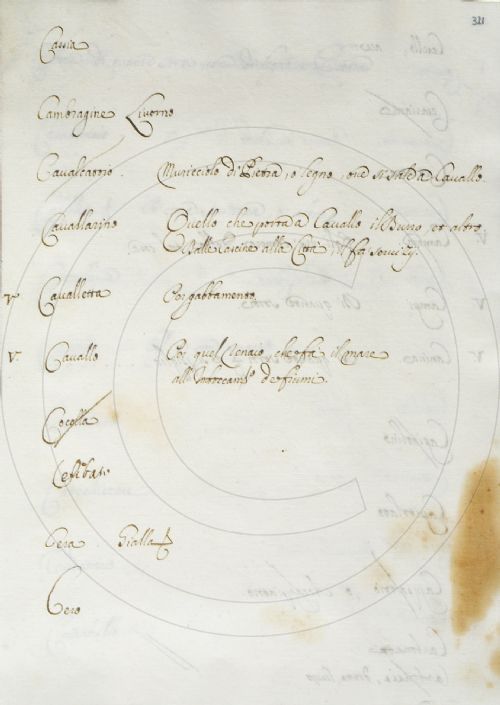 321
Cassia
Cambragine Livorno
Cavalcatoio. Muricciolo di Pietra, o legno, ove si sale a Cavallo.
Cavallarino Quello che porta a Cavallo il Burro, et altro
Dalle Cascine alla Città, il fa
V. Cavalletta Per gabbamento
V. Cavallo Per quel Renaio, che fà il mare
all'Imboccam.to de fiumi.
Cocolla
Cera Gialla
Cero